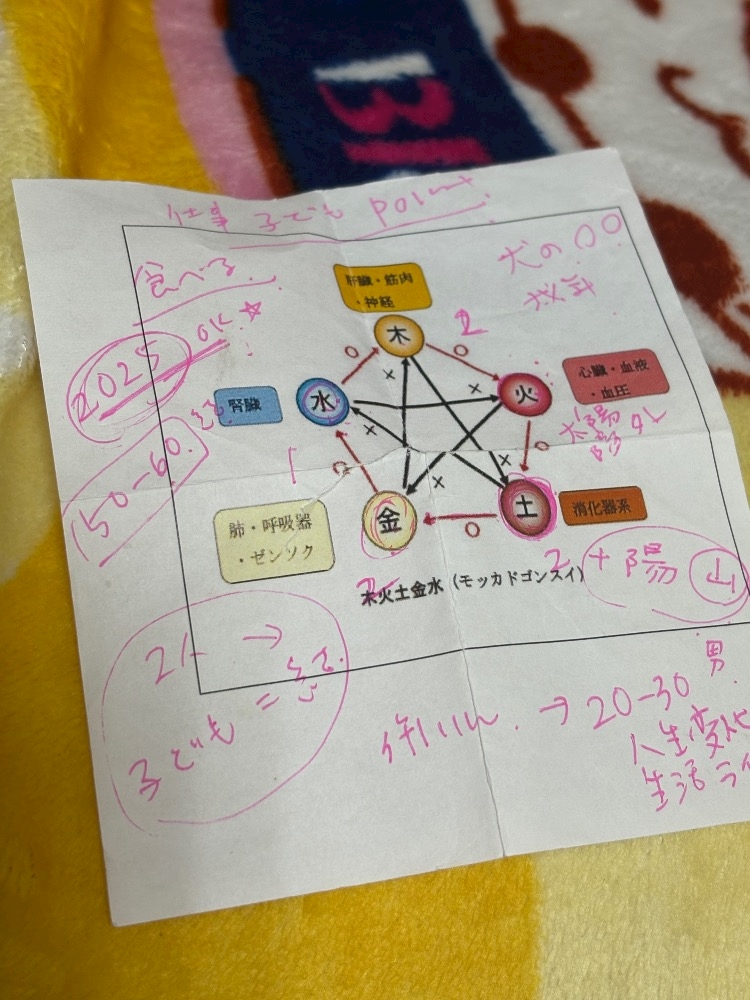 仕事 子ども point
食べる
犬の〇〇
肝臓・筋肉
・神経
2025 OK ☆
木
2
腎臓
水
火
心臓・血液
・血圧
150-60
1
太陽
金
土
消化器系
肺・呼吸器
・ゼンソク
2 + 陽 山
木火土金水（モッカドゴンスイ）
2人 →
子ども =
→ 20-30 男
人生変化
生活